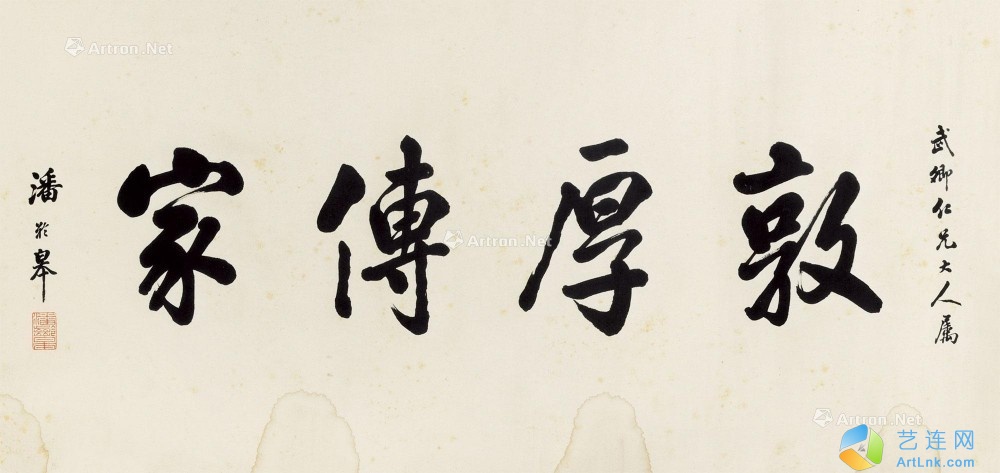 武卿仁兄大人属
敦厚傳家
潘龄皋
Artron.Net
Artron.Net
Artron.Net
艺连网
ArtLnk.com